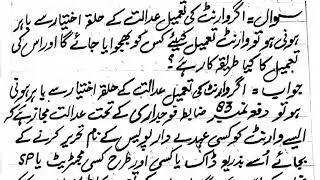 سوال = اگر وارنٹ کی تعمیل عدالت کے حلقہ اختیار سے باہر
ہونی ہو تو وارنٹ تعمیل کیلئے کس کو بھجوایا جائے گا اور اس کی
تعمیل کا کیا طریقہ کار ہے؟
جواب = اگر وارنٹ کی تعمیل عدالت کے حلقہ اختیار سے باہر ہونی
ہو تو دفعہ نمبر 83 ضابطہ فوجداری کے تحت عدالت مجاز ہے کہ
ایسے وارنٹ کو کسی عہدے دار پولیس کے نام تحریر کرنے کے
بجائے اُسے بذریعہ ڈاک یا کسی اور طرح کسی مجسٹریٹ یا SP